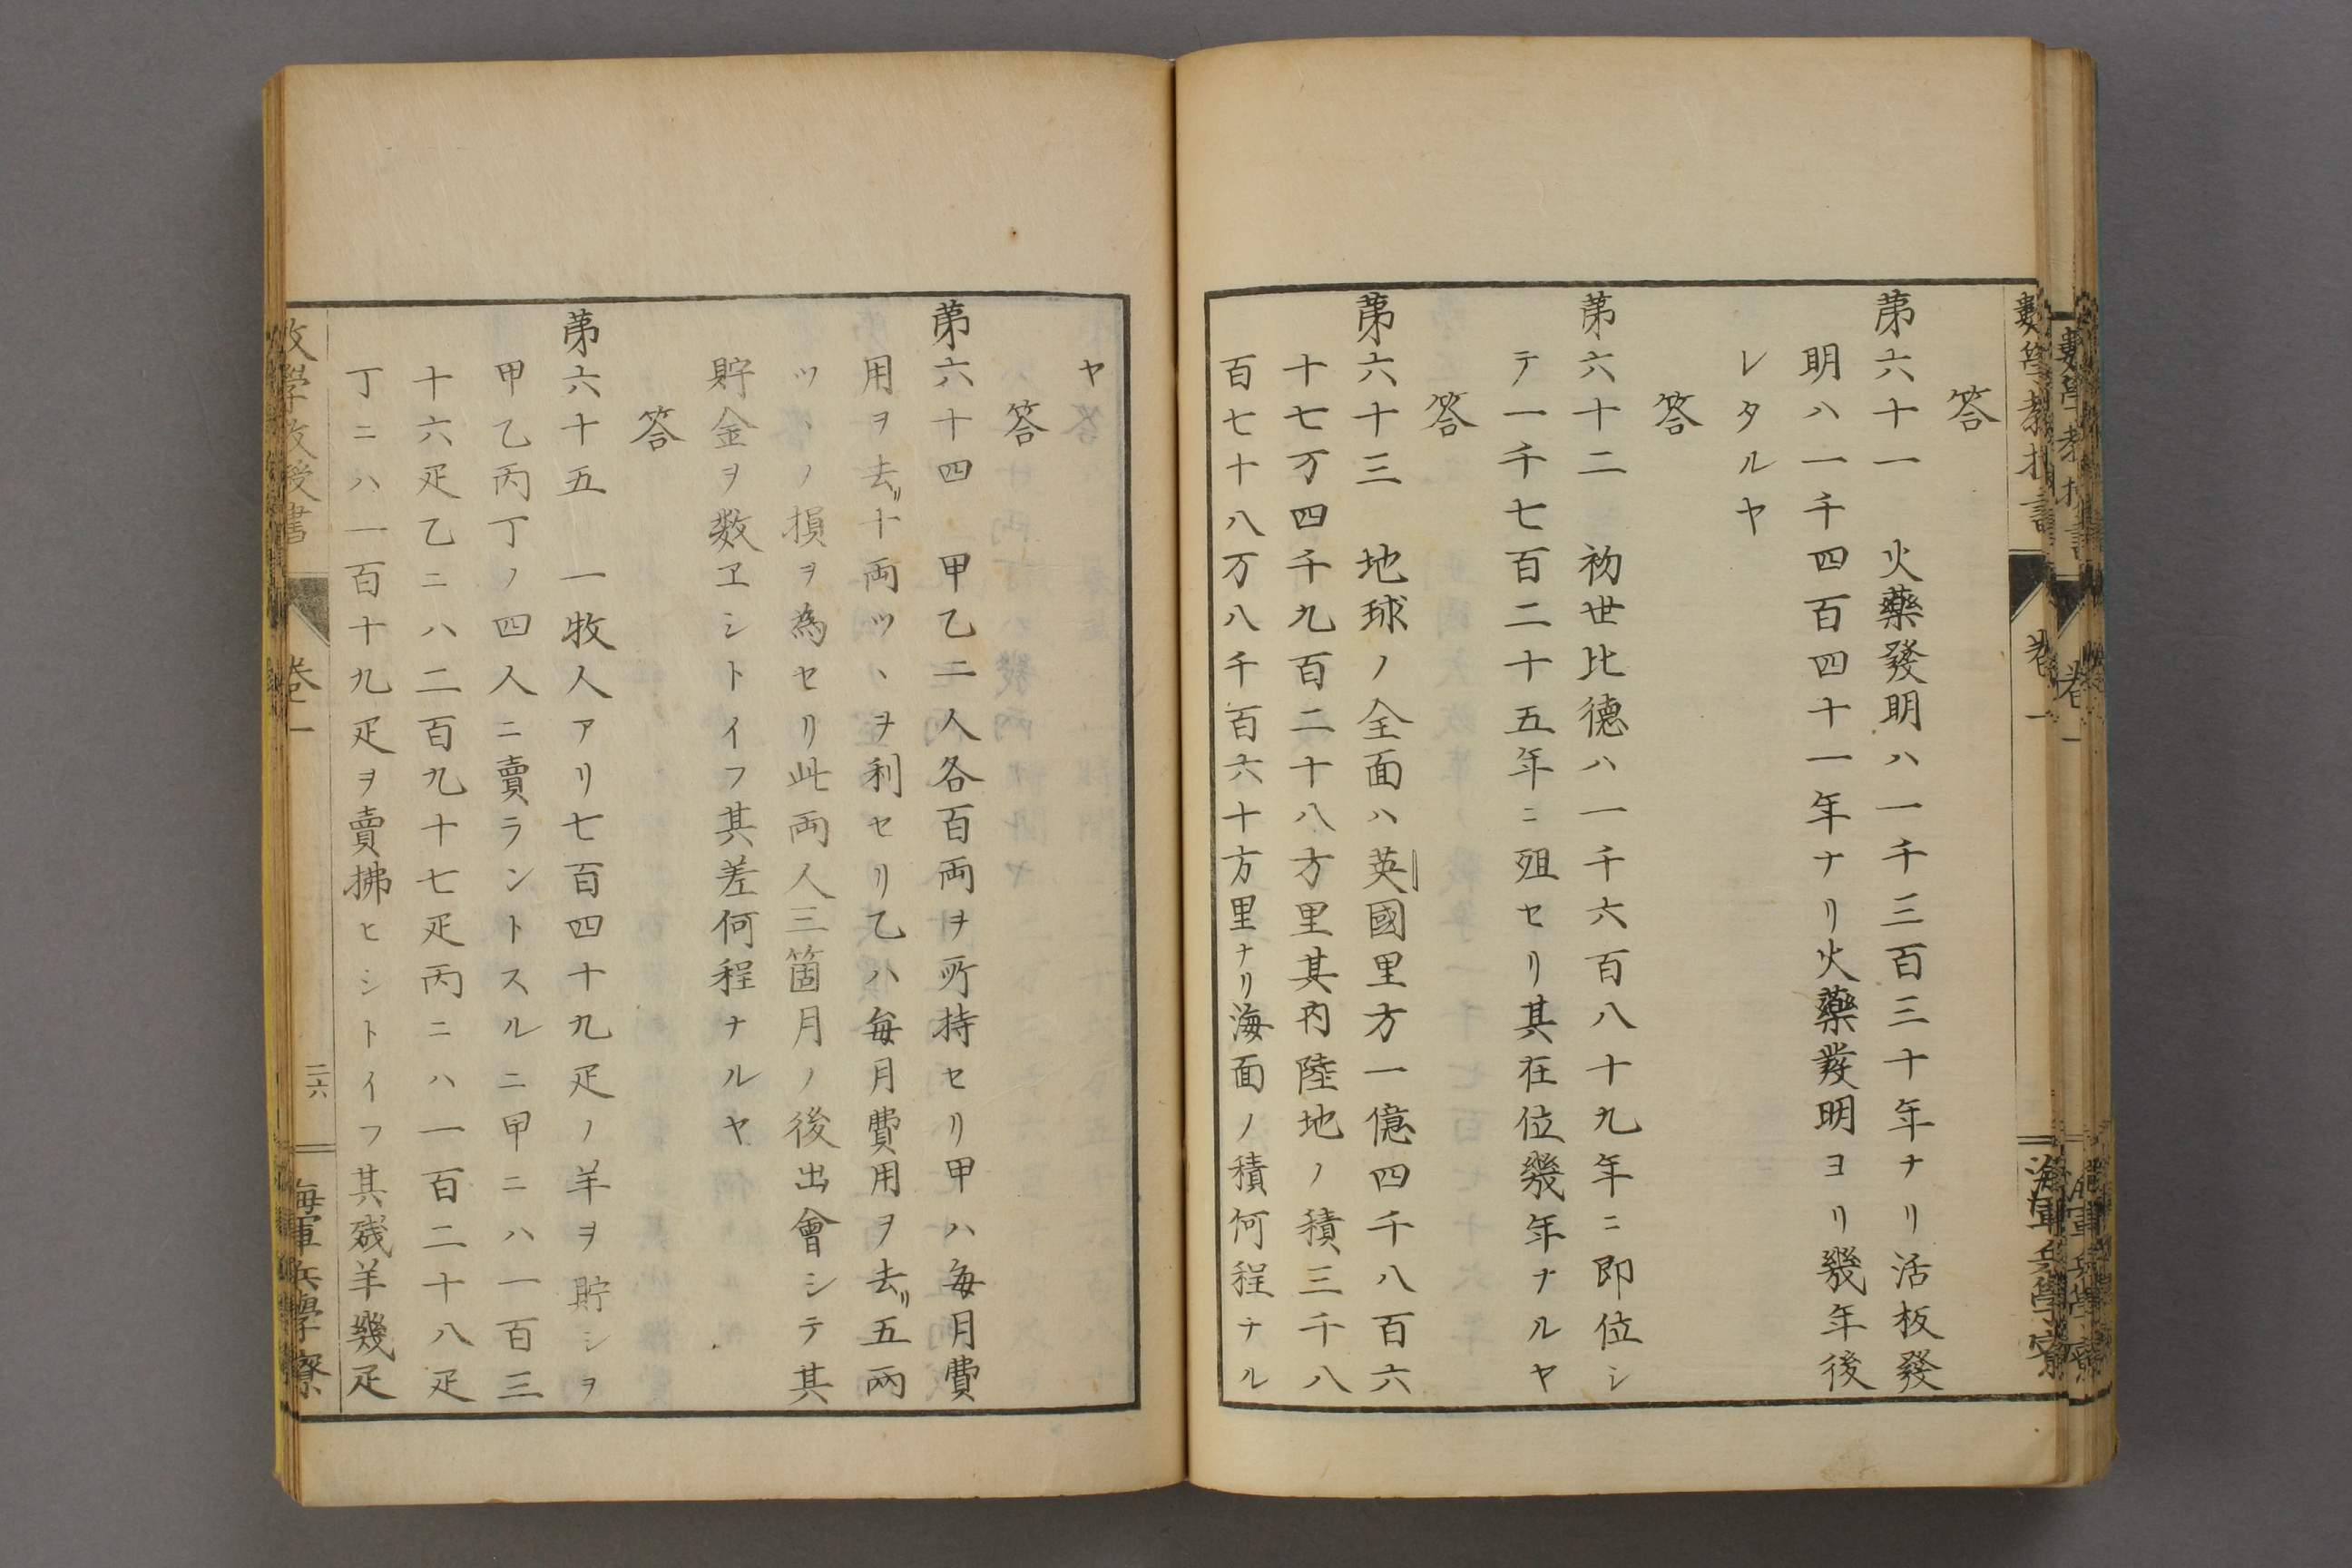 數學教授書
卷一
海軍兵學寮
答
第六十一　火藥發明ハ一千三百三十年ナリ活板發
明ハ一千四百四十一年ナリ火藥發明ヨリ幾年後
レタルヤ
答
第六十二　初世比德ハ一千六百八十九年ニ即位シ
テ一千七百二十五年ニ殂セリ其在位幾年ナルヤ
答
第六十三　地球ノ全面ハ英國里方一億四千八百六
十七万四千九百二十八方里其内陸地ノ積三千八
百七十八万八千百六十方里ナリ海面ノ積何程ナル
ヤ
答
第六十四　甲乙二人各百両ヲ所持セリ甲ハ毎月費
用ヲ去リ十両ツヽヲ利セリ乙ハ毎月費用ヲ去リ五兩
ツヽノ損ヲ為セリ此両人三箇月ノ後出會シテ其
貯金ヲ数ヱシトイフ其差何程ナルヤ
答
第六十五　一牧人アリ七百四十九疋ノ羊ヲ貯シヲ
甲乙丙丁ノ四人ニ賣ラントスルニ甲ニハ一百三
十六疋乙ニハ二百九十七疋丙ニハ一百二十八疋
丁ニハ一百十九疋ヲ賣拂ヒシトイフ其残羊幾疋
數學教授書
卷一
二六
海軍兵學寮